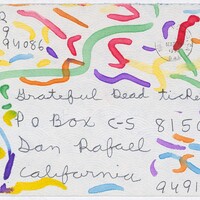 2
9
94086
Grateful Dead ticke
P O Box C-S 8150
San Rafael
California
9491